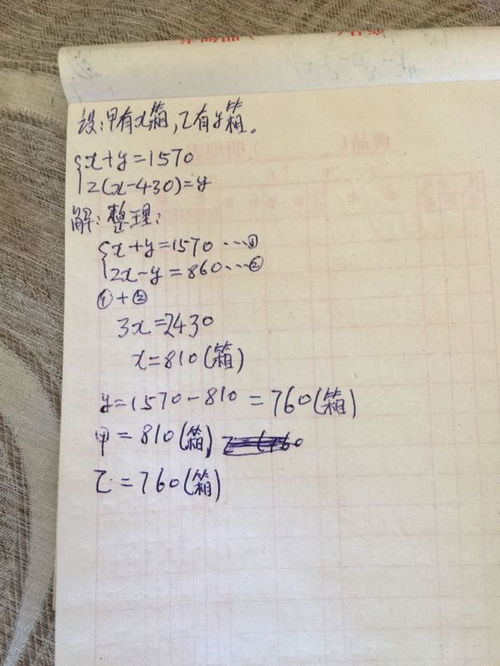 设:甲有x箱,乙有y箱。
{x+y=1570
2(x-430)=y
解:整理:
{x+y=1570…①
2x-y=860…②
①+②
3x=2430
x=810(箱)
y=1570-810=760(箱)
甲=810(箱)
乙=760(箱)